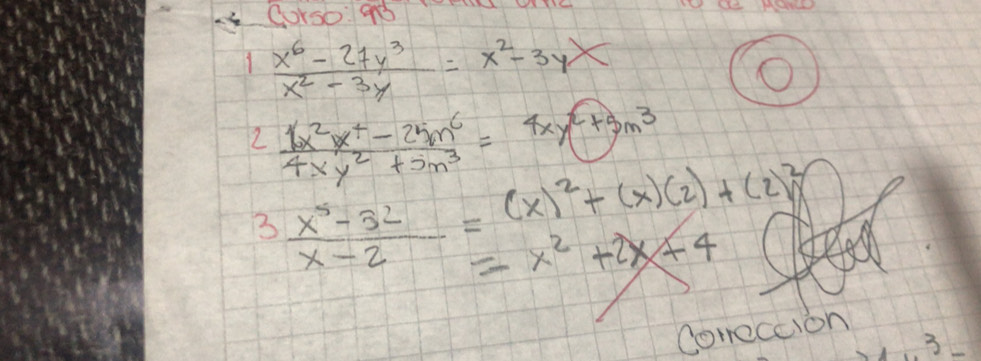 Curso: 9
1 x⁶ - 27y³ / x² - 3y = x² - 3y
2 16x²y⁴ - 25m⁶ / 4xy² + 5m³ = 4xy² + 5m³
3 x⁵ - 32 / x - 2 = (x)² + (x)(2) + (2)²
= x² + 2x + 4
Corrección